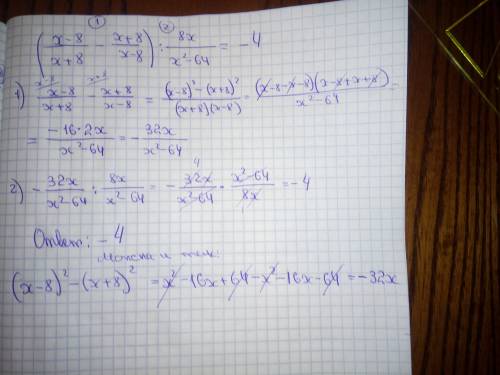 ① ②
((x-8)/(x+8) - (x+8)/(x-8)) : 8x/(x²-64) = -4
1) (x-8)/(x+8) - (x+8)/(x-8) = ((x-8)² - (x+8)²)/((x+8)(x-8)) = ((x-8-x-8)(x-8+x+8))/(x²-64) =
= (-16·2x)/(x²-64) = -32x/(x²-64)
2) -32x/(x²-64) : 8x/(x²-64) = -32x/(x²-64) · (x²-64)/8x = -4
4
Ответ: -4
можна и так:
(x-8)² - (x+8)² = x² - 16x + 64 - x² - 16x - 64 = -32x